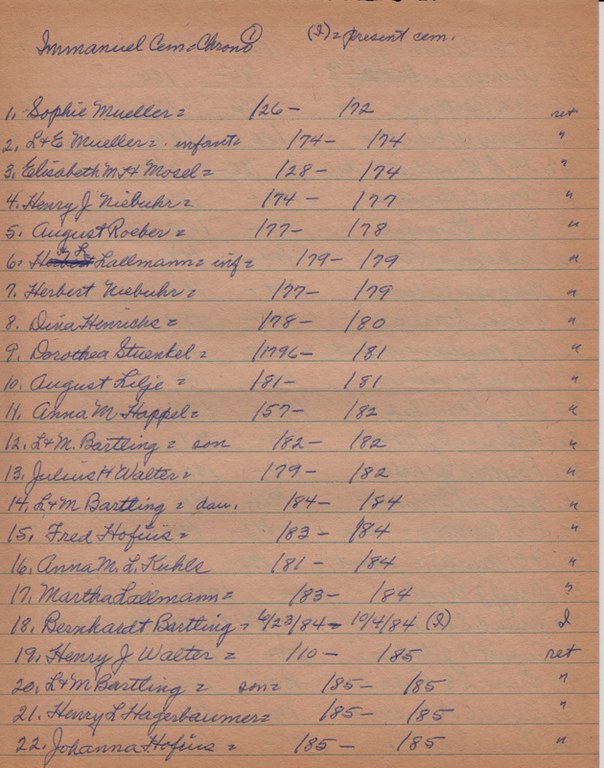 Immanuel Cem = Chrono ① (I) = present cem.
1. Sophie Mueller = /26 - /72 ret
2. L+E Mueller = infant /74 - /74 "
3. Elisabeth M.H Mosel = /28 - /74 "
4. Henry J Niebuhr = /74 - /77 "
5. August Roeber = /77 - /78 "
6. H L Lallmann = inf = /79 - /79 "
7. Herbert Niebuhr = /77 - /79 "
8. Dina Henrichs = /78 - /80 "
9. Dorothea Stuenkel = /1796 - /81 "
10. August Lilje = /81 - /81 "
11. Anna M Happel = /57 - /82 "
12. L+M. Bartling = son /82 - /82 "
13. Julius H Walter = /79 - /82 "
14. L+M Bartling = dau. /84 - /84 "
15. Fred Hofius = /83 - /84 "
16. Anna M. L. Kuhls /81 - /84 "
17. Martha Lallmann = /83 - /84 "
18. Bernhardt Bartling = 6/23/84 - 10/4/84 (I) I
19. Henry J Walter = /10 - /85 ret
20. L+M Bartling = son = /85 - /85 "
21. Henry L Hagerbaumer = /85 - /85 "
22. Johanna Hofius = /85 - /85 "